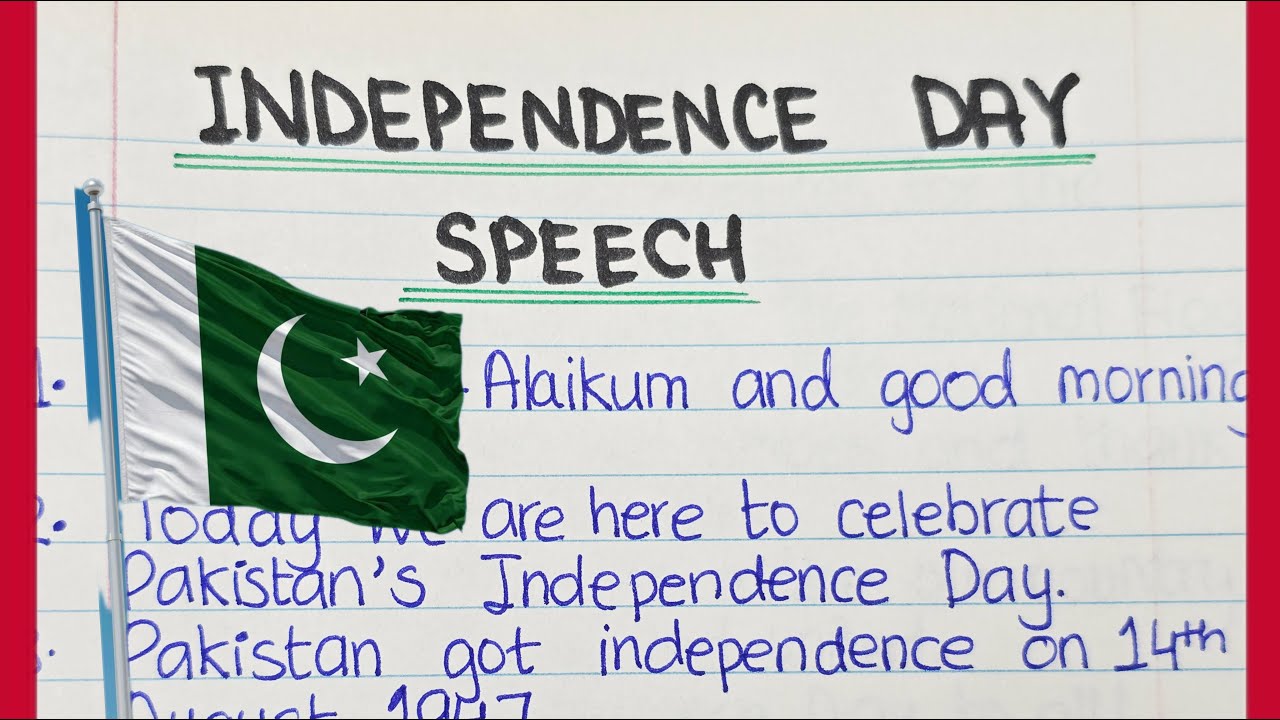 INDEPENDENCE DAY
SPEECH
1. Alaikum and good morning
2. Today we are here to celebrate
Pakistan's Independence Day.
3. Pakistan got independence on 14th
August 1947